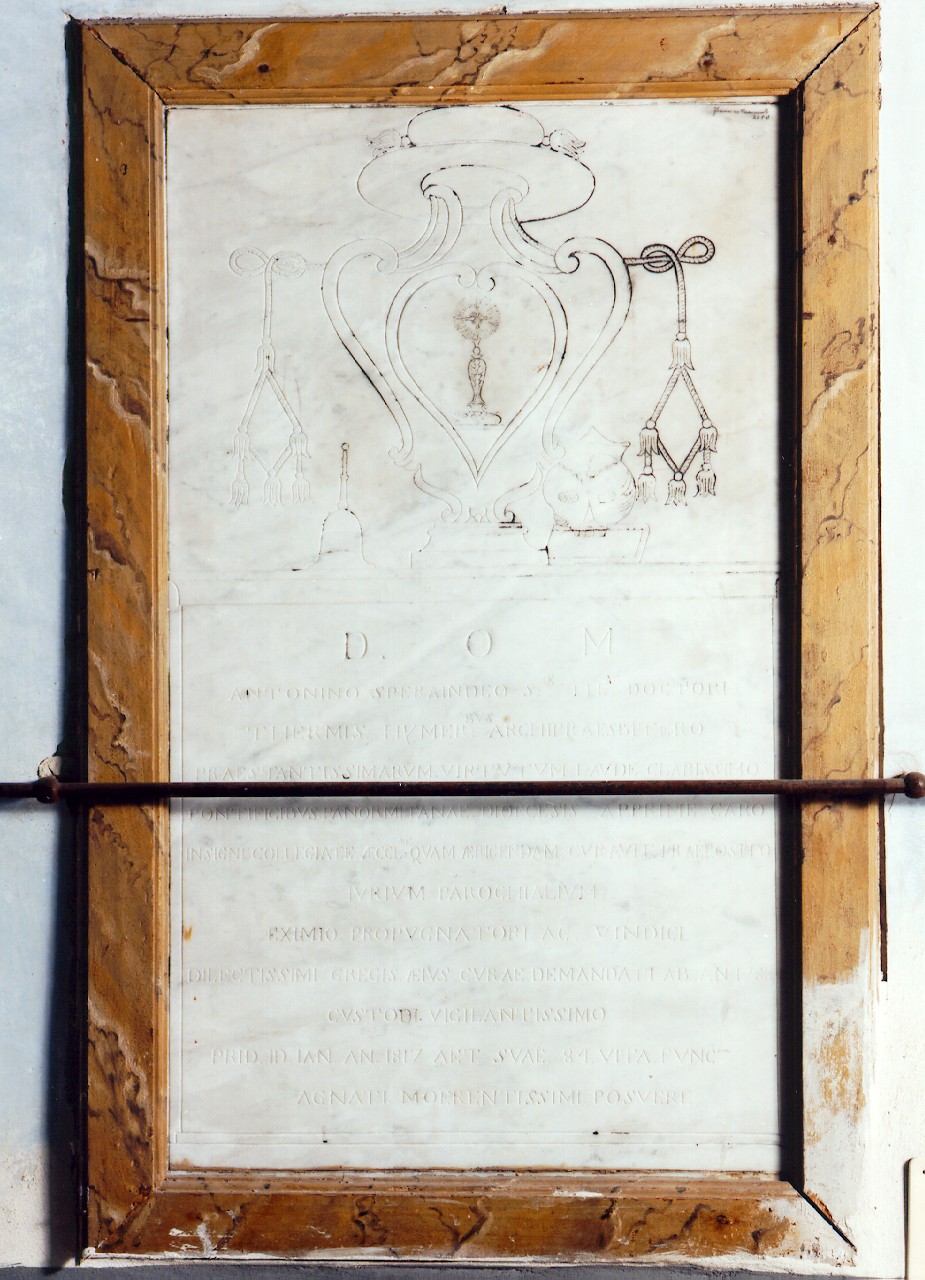 D. O M
ANTONINO SPERAINDEO DOCTORI
THERMIS HYMER. ARCHIPRAESBITERO
PRAESTANTISSIMARVM VIRTVTVM LAVDE CLARISSIMO
PONTIFICIBVS PANORMITANAE DIOECESIS APPRIME CARO
INSIGNI COLLEGIATE ÆCCL. QUAM ÆRIGENDAM CVRAVIT PRAEPOSITO
IVRIVM PAROCHIALIVM
EXIMIO PROPVGNATORI AC VINDICI
DILECTISSIMI GREGIS ÆIVS CVRAE DEMANDATI AB AN.
CVSTODI VIGILANTISSIMO
PRID. ID. IAN. AN. 1817 AET. SVAE 84 VITA FVNC
AGNATI MOERENTISSIMI POSVERE